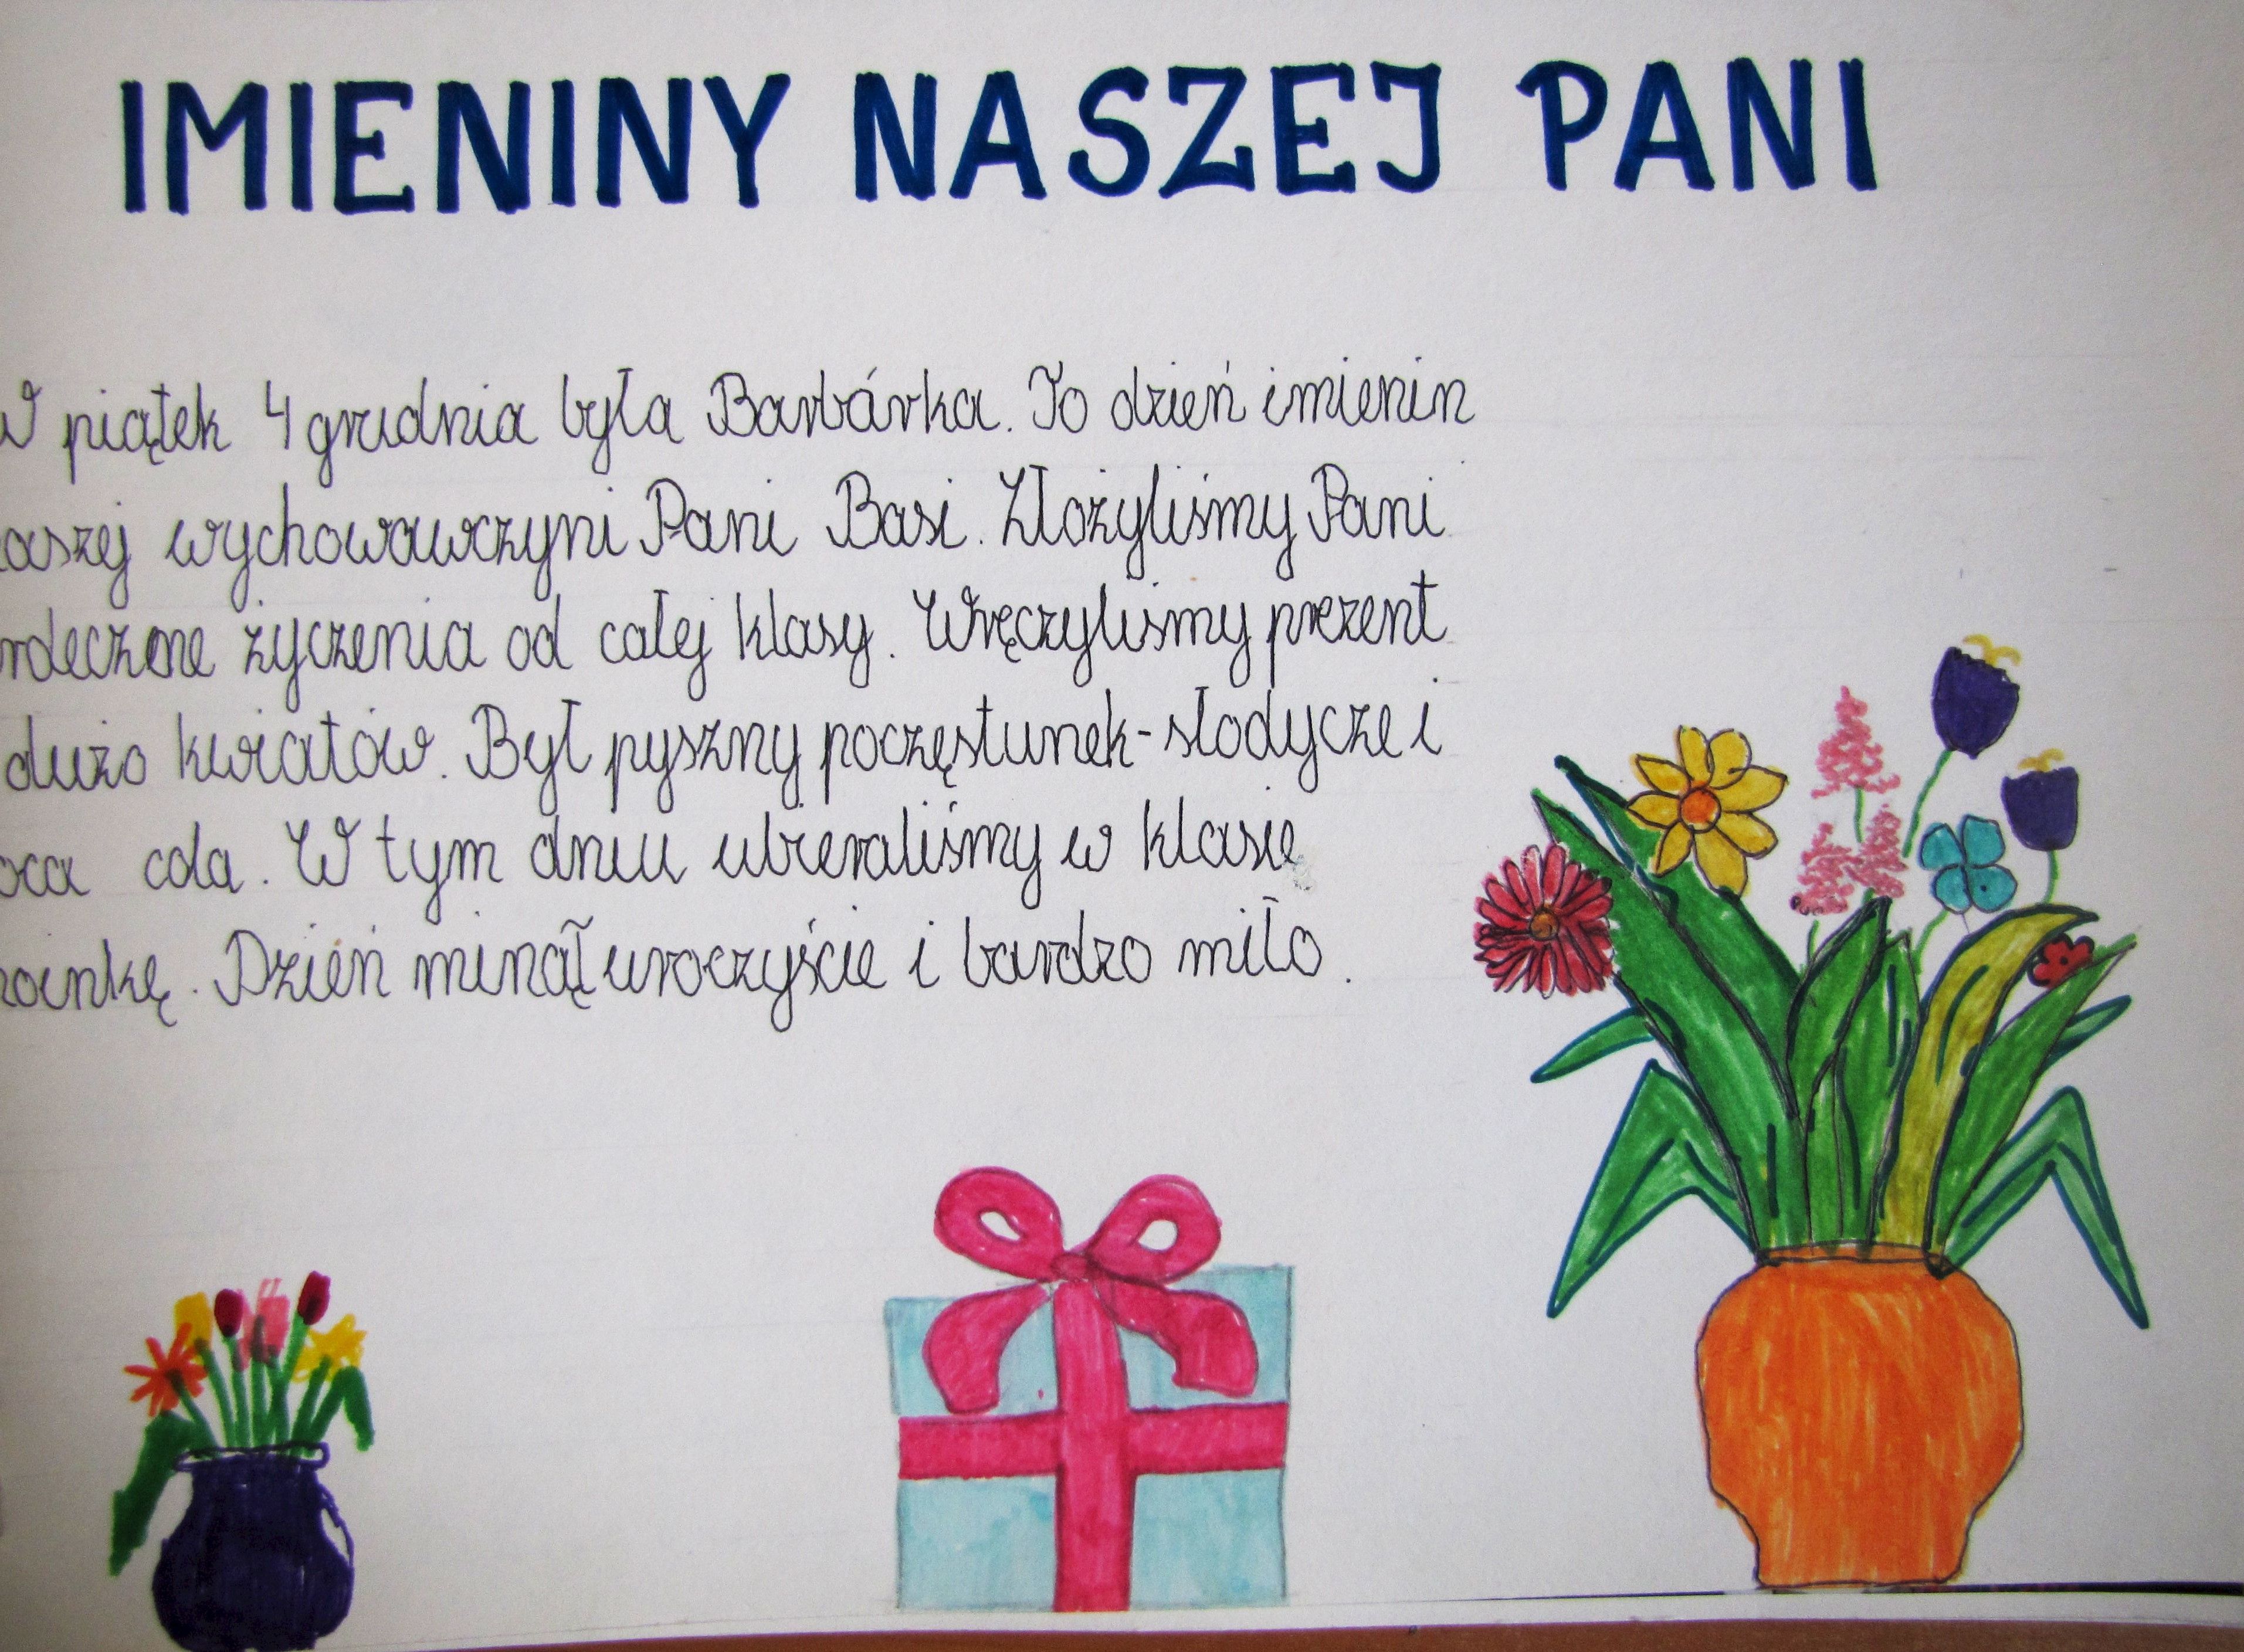 IMIENINY NASZEJ PANI
W piątek 4 grudnia była Barbárka. To dzień imienin
aszej wychowawczyni Pani Basi. Złożyliśmy Pani
rdeczne życzenia od całej klasy. Wręczyliśmy prezent
dużo kwiatów. Był pyszny poczęstunek - słodycze i
oca cola. W tym dniu ubieraliśmy w klasie
oinkę. Dzień minął uroczyście i bardzo miło.